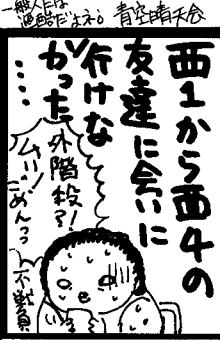 一般人には
過酷だよネ。 青空晴天会
西1から西4の
友達に会いに
行けな
かった
‥‥
外階段?!
ムリ!
ごめんっっ
不戦負